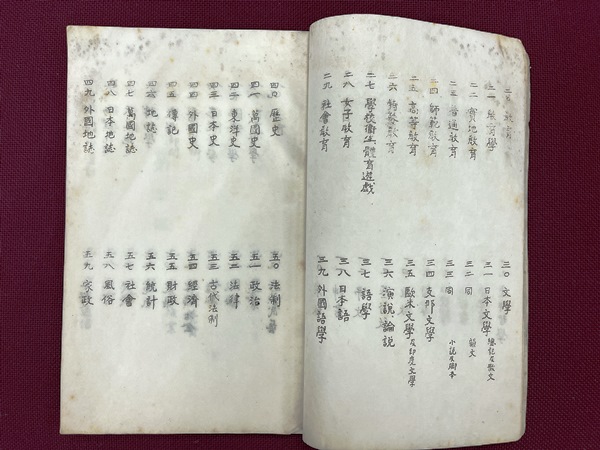 二〇 教育
二一 教育學
二二 實地教育
二三 普通教育
二四 師範教育
二五 高等教育
二六 特殊教育
二七 學校衛生體育遊戯
二八 女子教育
二九 社會教育
三〇 文學
三一 日本文學 總記及散文
三二 同 韻文
三三 同 小説及脚本
三四 支那文學
三五 歐米文學 及印度文學
三六 演説論説
三七 語學
三八 日本語
三九 外國語學
四〇 歷史
四一 萬國史
四二 東洋史
四三 日本史
四四 外國史
四五 傳記
四六 地誌
四七 萬國地誌
四八 日本地誌
四九 外國地誌
五〇 法制
五一 政治
五二 法律
五三 古代法制
五四 經濟
五五 財政
五六 統計
五七 社會
五八 風俗
五九 家政